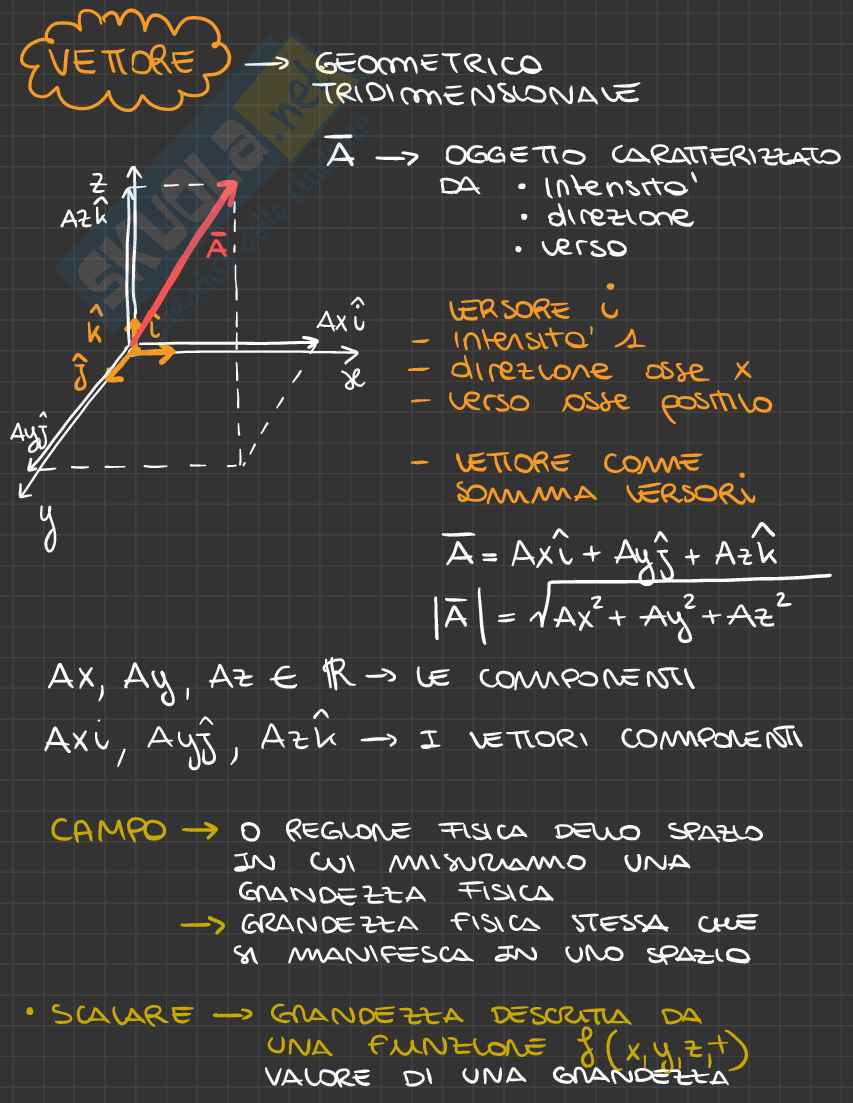 VETTORE → GEOMETRICO
TRIDIMENSIONALE
A̅ → OGGETTO CARATTERIZZATO
DA • intensita'
• direzione
• verso
z
Azk̂
A̅
k̂
î
ĵ
Axî
x
Ayĵ
y
VERSORE i
- intensita' 1
- direzione asse x
- verso asse positivo
- VETTORE COME
SOMMA VERSORI
A̅ = Axî + Ayĵ + Azk̂
|A̅| = √Ax² + Ay² + Az²
Ax, Ay, Az ∈ ℝ → LE COMPONENTI
Axi, Ayĵ, Azk̂ → I VETTORI COMPONENTI
CAMPO → O REGIONE FISICA DELLO SPAZIO
IN CUI MISURIAMO UNA
GRANDEZZA FISICA
→ GRANDEZZA FISICA STESSA CHE
SI MANIFESCA IN UNO SPAZIO
• SCALARE → GRANDEZZA DESCRITTA DA
UNA FUNZIONE f(x,y,z,t)
VALORE DI UNA GRANDEZZA
SKUOLA.net